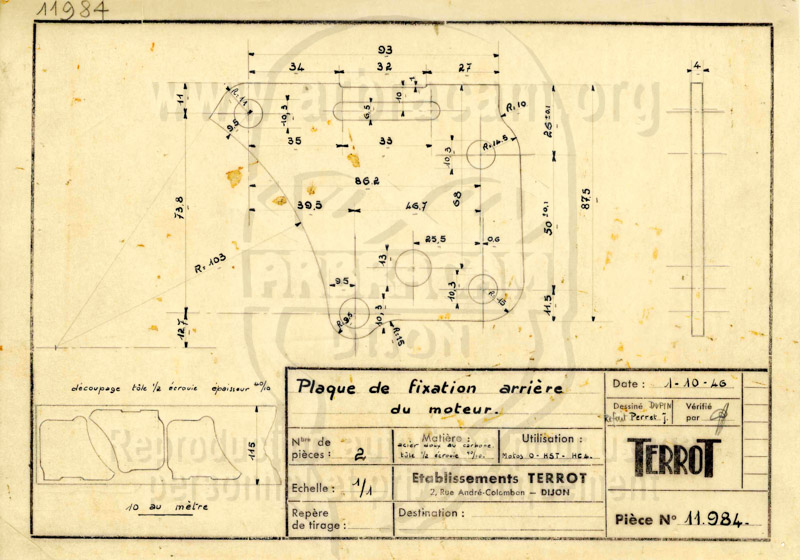 11984
93
34 32 27
4
11
R:11
10,3
6,5
10
1
R:10
26±0,1
9,5
35 33
10,3
R:14,5
86.2
68
87,5
73,8
39,5 46,7
50±0,1
25,5 0,6
R:103
13
9,5
10,3
R:13
11,5
12,7
R:9,5
10,3
R:15
découpage tôle 1/2 écrouie épaisseur 40/10
115
10 au mètre
Plaque de fixation arrière
du moteur.
Date : 1-10-46
Dessiné DUPIN
Refait Perret J.
Vérifié
par
Nbre de
pièces : 2
Matière :
acier doux au carbone.
tôle 1/2 écrouie 40/10.
Utilisation :
Motos O-HST-HCL.
TERROT
Echelle : 1/1
Etablissements TERROT
2, Rue André-Colomban — DIJON
Repère
de tirage :
Destination :
Pièce N° 11.984.
www.arbracam.org
ARBRACAM
DIJON